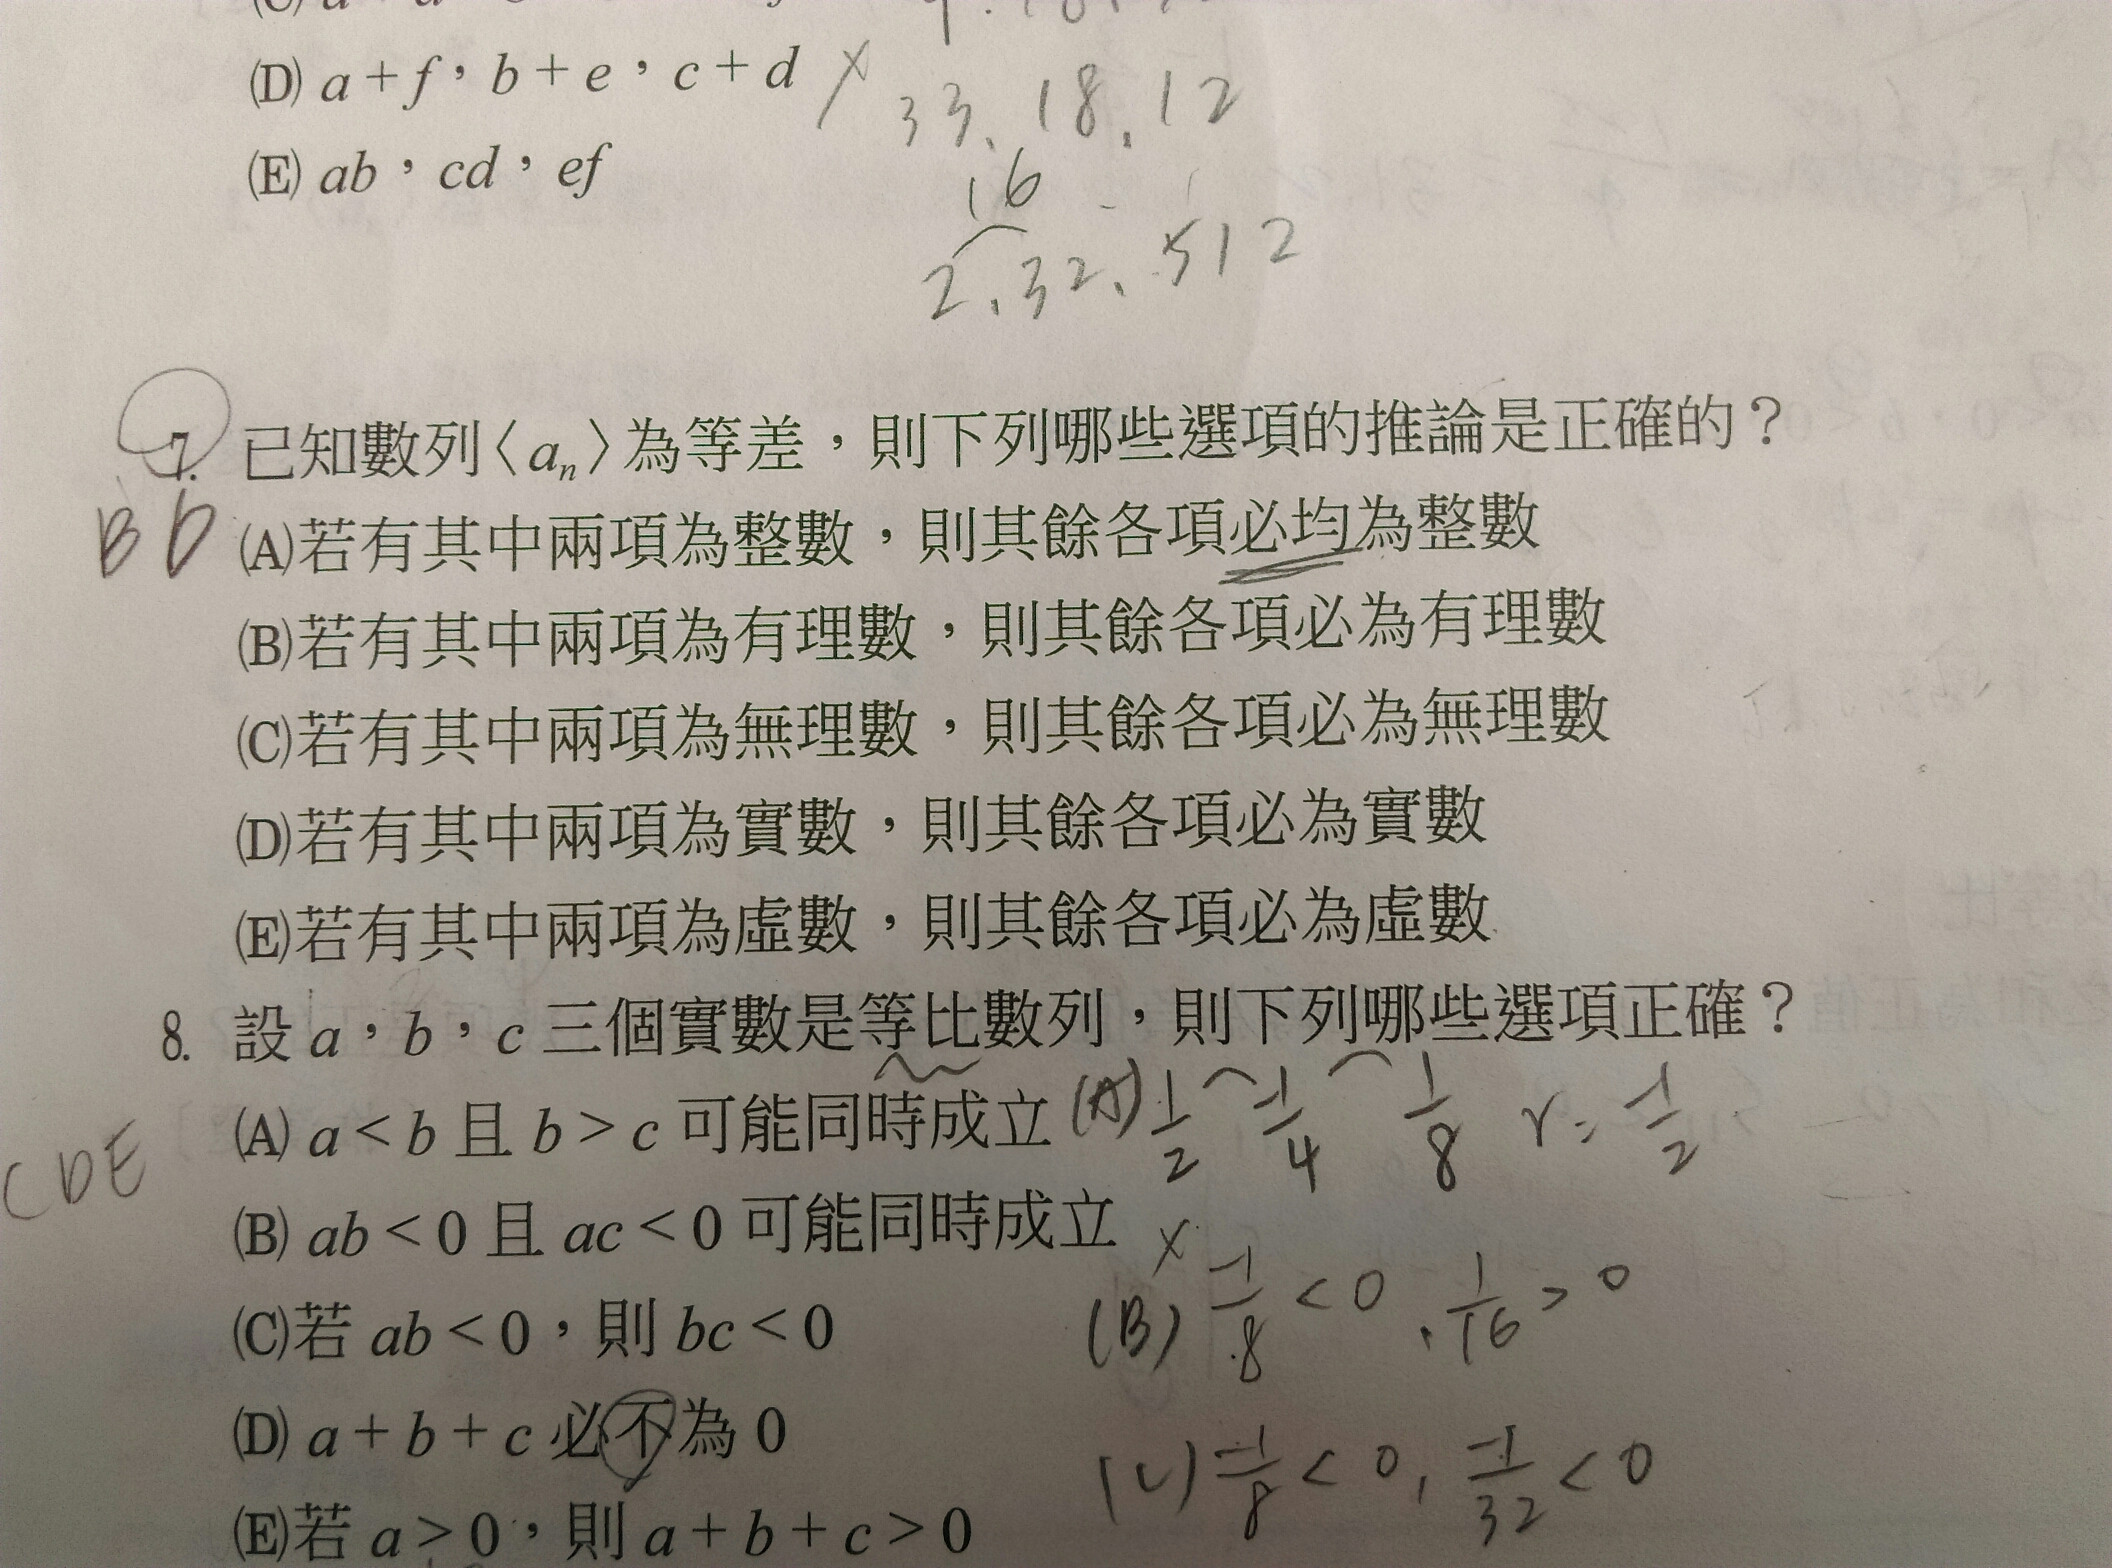 (D) a + f，b + e，c + d ×
33, 18, 12
(E) ab，cd，ef
16
2, 32, 512
7. 已知數列〈aₙ〉為等差，則下列哪些選項的推論是正確的？
BD
(A)若有其中兩項為整數，則其餘各項必均為整數
(B)若有其中兩項為有理數，則其餘各項必為有理數
(C)若有其中兩項為無理數，則其餘各項必為無理數
(D)若有其中兩項為實數，則其餘各項必為實數
(E)若有其中兩項為虛數，則其餘各項必為虛數
8. 設 a，b，c 三個實數是等比數列，則下列哪些選項正確？
CDE
(A) a < b 且 b > c 可能同時成立 (A) 1/2 -1/4 1/8 r = -1/2
(B) ab < 0 且 ac < 0 可能同時成立 ×
(B) -1/8 < 0, 1/16 > 0
(C)若 ab < 0，則 bc < 0
(D) a + b + c 必不為 0
(C) -1/8 < 0, -1/32 < 0
(E)若 a > 0，則 a + b + c > 0